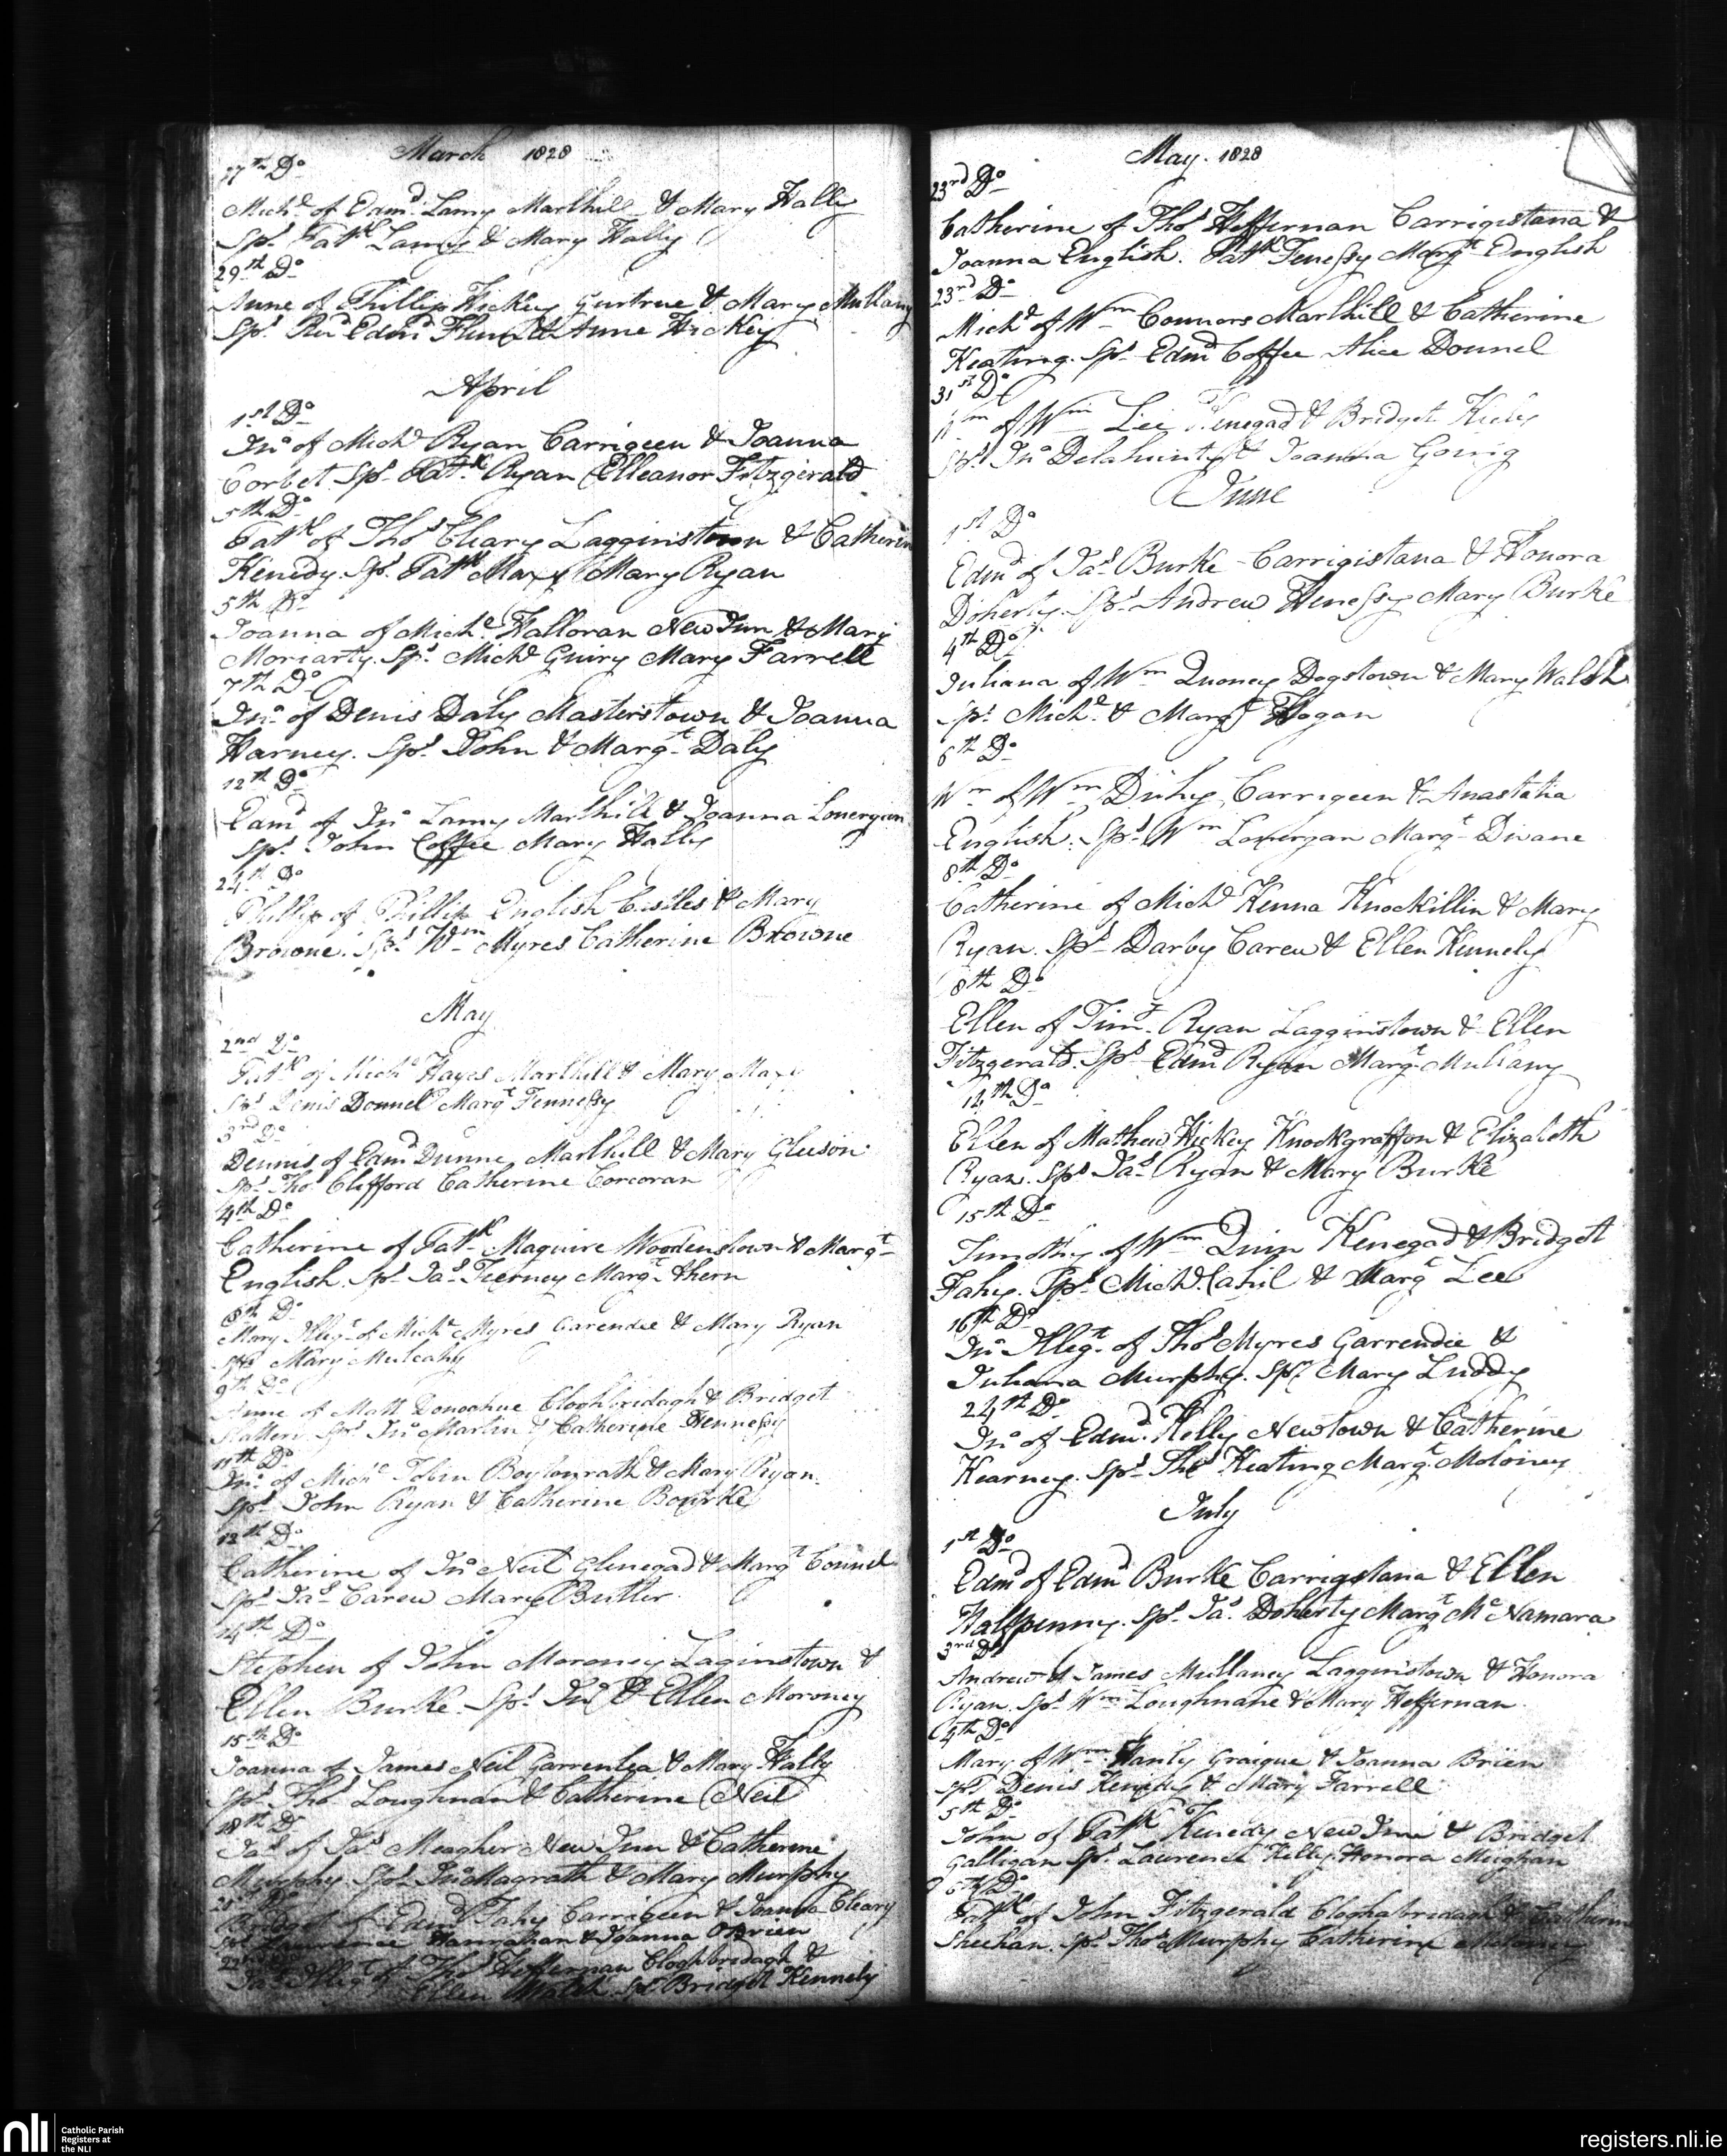 March 1828
27th Do
Michl of Edmd Lamy Marlhill & Mary Hally
Sps Patk Lamy & Mary Hally
29th Do
Anne of Phillip Hickey Gurtrue & Mary Mullany
Sps Revd Edmd & Anne Hickey
April
1st Do
Jno of Michl Ryan Carrigeen & Joanna
Corbet Sps Patk Ryan Elleanor Fitzgerald
5th Do
Patk of Thos Cleary Lagginstown & Catherin
Kenedy. Sps Patk Maxy Mary Ryan
5th Do
Joanna of Michl Halloran New Inn & Mary
Moriarty. Sps Michl Guiry Mary Farrell
7th Do
Jno of Denis Daly Masterstown & Joanna
Harney. Sps John & Margt Daly
12th Do
Edmd of Jno Lamy Marlhill & Joanna Lonergan
Sps John Coffee Mary Hally
24th Do
Phillip of Phillip English Castles & Mary
Browne. Sps Wm Myres Catherine Browne
May
2nd Do
Patk of Michl Hayes Marlhill & Mary Maxy
Sps Denis Donnel Margt Fennessy
3rd Do
Dennis of Edmd Dunne Marlhill & Mary Gleeson
Sps Thos Clifford Catherine Corcoran
4th Do
Catherine of Patk Maguire Woodenstown & Margt
English. Sps Jas Tierney Margt Ahern
8th Do
Mary Illegt of Michl Myres Garendee & Mary Ryan
Sps Mary Mulcahy
9th Do
Anne of Matt Donoghue Cloghbridagh & Bridget
Slattery Sps Jno Martin & Catherine Hennessy
11th Do
Jno of Michl Tobin Boytonrath & Mary Ryan
Sps John Ryan & Catherine Bourke
12th Do
Catherine of Jno Neil Glenegad & Margt Connel
Sps Jas Carew Mary Butler
14th Do
Stephen of John Moroney Laginstown &
Ellen Burke. Sps Jno & Ellen Moroney
15th Do
Joanna of James Neil Garrenlea & Mary Hally
Sps Thos Loughnan & Catherine Neil
18th Do
Jas of Jas Meagher New Inn & Catherine
Murphy. Sps Jno Magrath & Mary Murphy
Bridget of Edmd Fahy Carrigeen & Joanna Cleary
Sps Hanrahan & Joanna OBrien
22nd
Illegt of Thos Heffernan Cloghbridagh &
Ellen Walsh Sps Bridget Kennely
May. 1828
23rd Do
Catherine of Thos Heffernan Carrigistana &
Joanna English. Patk Fenessy Margt English
23rd Do
Michl of Wm Connors Marlhill & Catherine
Keating. Sps Edmd Coffee Alice Donnel
31st Do
Wm of Wm Lee Kenegad & Bridget Kiely
Sps Jno Delahunty & Joanna Going
June
1st Do
Edmd of Jas Burke Carrigistana & Honora
Doherty. Sps Andrew Henessy Mary Burke
4th Do
Juliana of Wm Quoney Dogstown & Mary Walsh
Sps Michl & Margt Hogan
6th Do
Wm of Wm Dirhy Carrigeen & Anastatia
English. Sps Wm Lonergan Margt Divane
8th Do
Catherine of Michl Kenna Knockillin & Mary
Ryan. Sps Darby Carew & Ellen Kennely
8th Do
Ellen of Timt Ryan Lagginstown & Ellen
Fitzgerald. Sps Edmd Ryan Margt Mullany
14th Do
Ellen of Mathew Hickey Knockgraffon & Elizabeth
Ryan. Sps Jas Ryan & Mary Burke
15th Do
Timothy of Wm Quin Kenegad & Bridget
Fahy. Sps Michl Cahil & Margt Lee
16th Do
Jno Illegt of Thos Myres Garrendie &
Juliana Murphy. Sps Mary Luddy
24th Do
Jno of Edmd Kelly Newtown & Catherine
Kearney. Sps Thos Keating Margt Moloney
July
1st Do
Edmd of Edmd Burke Carrigstana & Ellen
Halfpenny. Sps Jas Doherty Margt McNamara
3rd Do
Andrew of James Mullaney Lagginstown & Honora
Ryan. Sps Wm Loughnane & Mary Heffernan
4th Do
Mary of Wm Hanly Graigue & Joanna Brien
Sps Denis & Mary Farrell
5th Do
John of Patk Kenedy New Inn & Bridget
Galligan Sps Laurence Kelly Honora Meighan
6th Do
Patk of John Fitzgerald Cloghabridagh & Catherine
Sheehan. Sps Thos Murphy Catherine Moloney
nli
Catholic Parish
Registers at
the NLI
registers.nli.ie